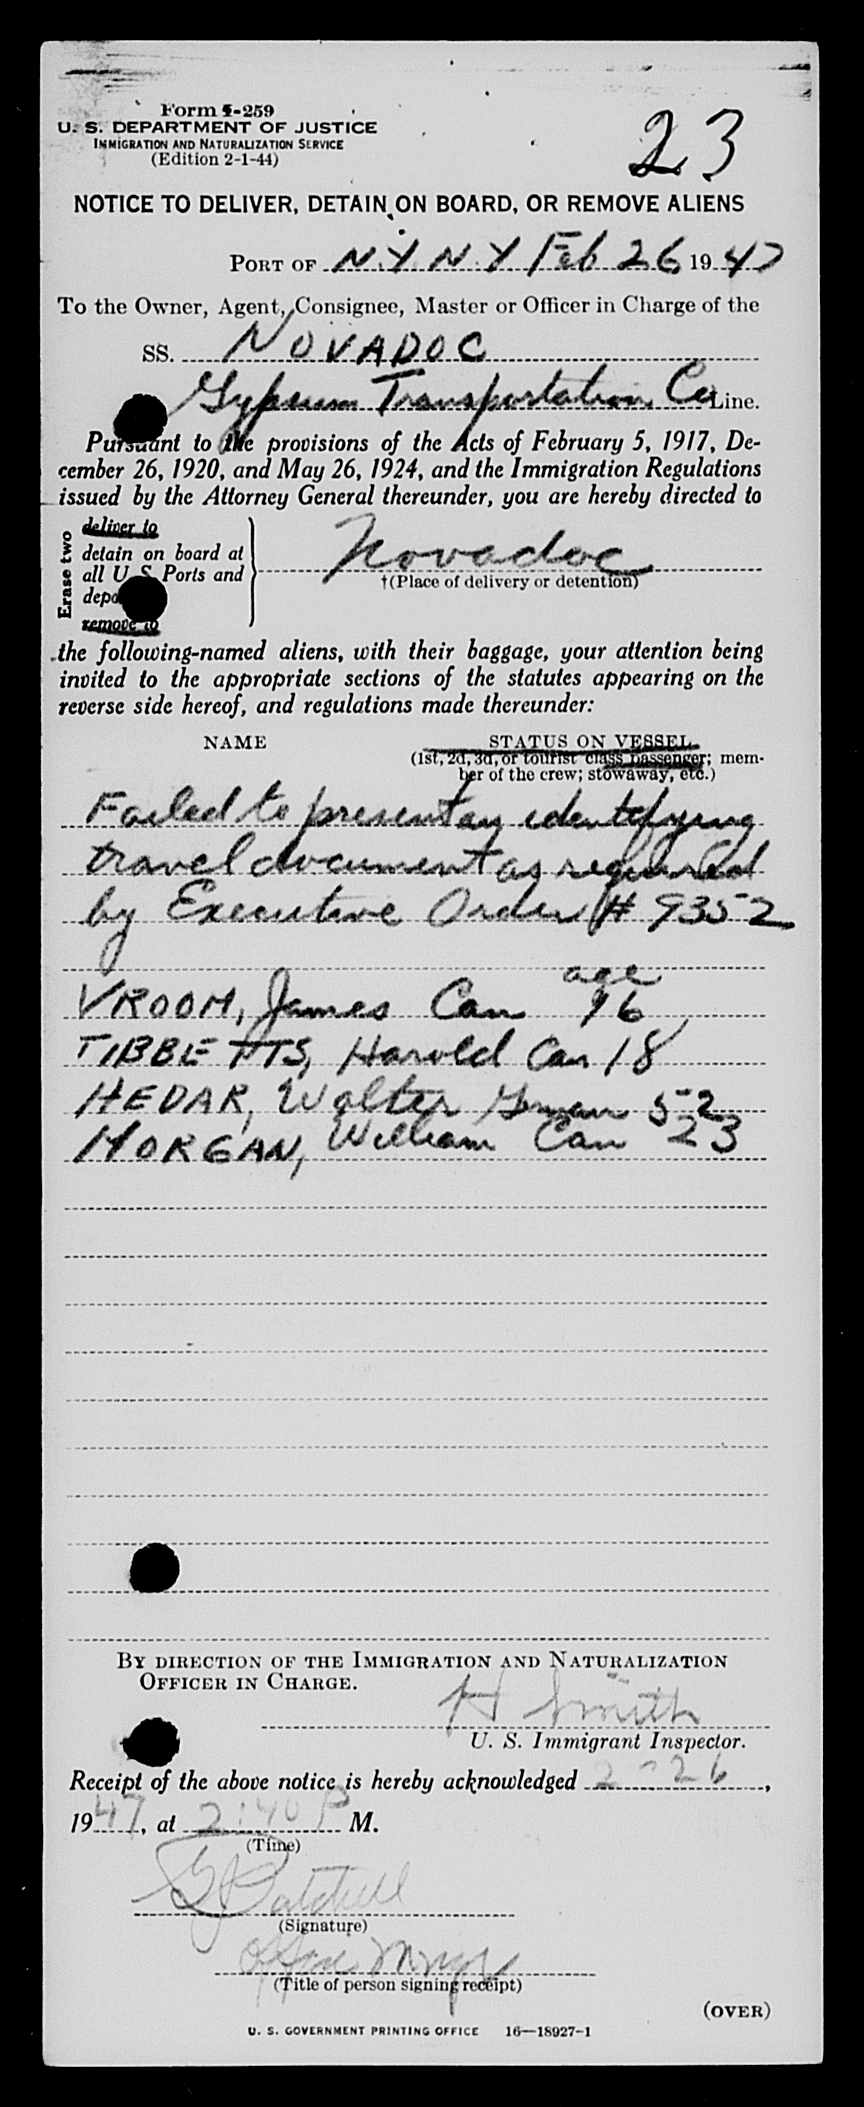 Form I-259
U. S. DEPARTMENT OF JUSTICE
IMMIGRATION AND NATURALIZATION SERVICE
(Edition 2-1-44)
23
NOTICE TO DELIVER, DETAIN ON BOARD, OR REMOVE ALIENS
PORT OF N.Y. N.Y Feb 26 1947
To the Owner, Agent, Consignee, Master or Officer in Charge of the
SS. NOVADOC
Gypsum Transportation Co Line.
Pursuant to the provisions of the Acts of February 5, 1917, De-
cember 26, 1920, and May 26, 1924, and the Immigration Regulations
issued by the Attorney General thereunder, you are hereby directed to
Erase two
deliver to
detain on board at
all U. S. Ports and
remove to
Novadoc
†(Place of delivery or detention)
the following-named aliens, with their baggage, your attention being
invited to the appropriate sections of the statutes appearing on the
reverse side hereof, and regulations made thereunder:
NAME STATUS ON VESSEL
(1st, 2d, 3d, or tourist class passenger; mem-
ber of the crew; stowaway, etc.)
Failed to present an identifying
travel document as required
by Executive Order # 9352
age
VROOM, James Can 16
TIBBETTS, Harold Can 18
HEDAR, Walter German 52
MORGAN, William Can 23
BY DIRECTION OF THE IMMIGRATION AND NATURALIZATION
OFFICER IN CHARGE.
H Smith
U. S. Immigrant Inspector.
Receipt of the above notice is hereby acknowledged 2-26,
1947, at 2:40 P M.
(Time)
(Signature)
(Title of person signing receipt)
(OVER)
U. S. GOVERNMENT PRINTING OFFICE 16—18927-1